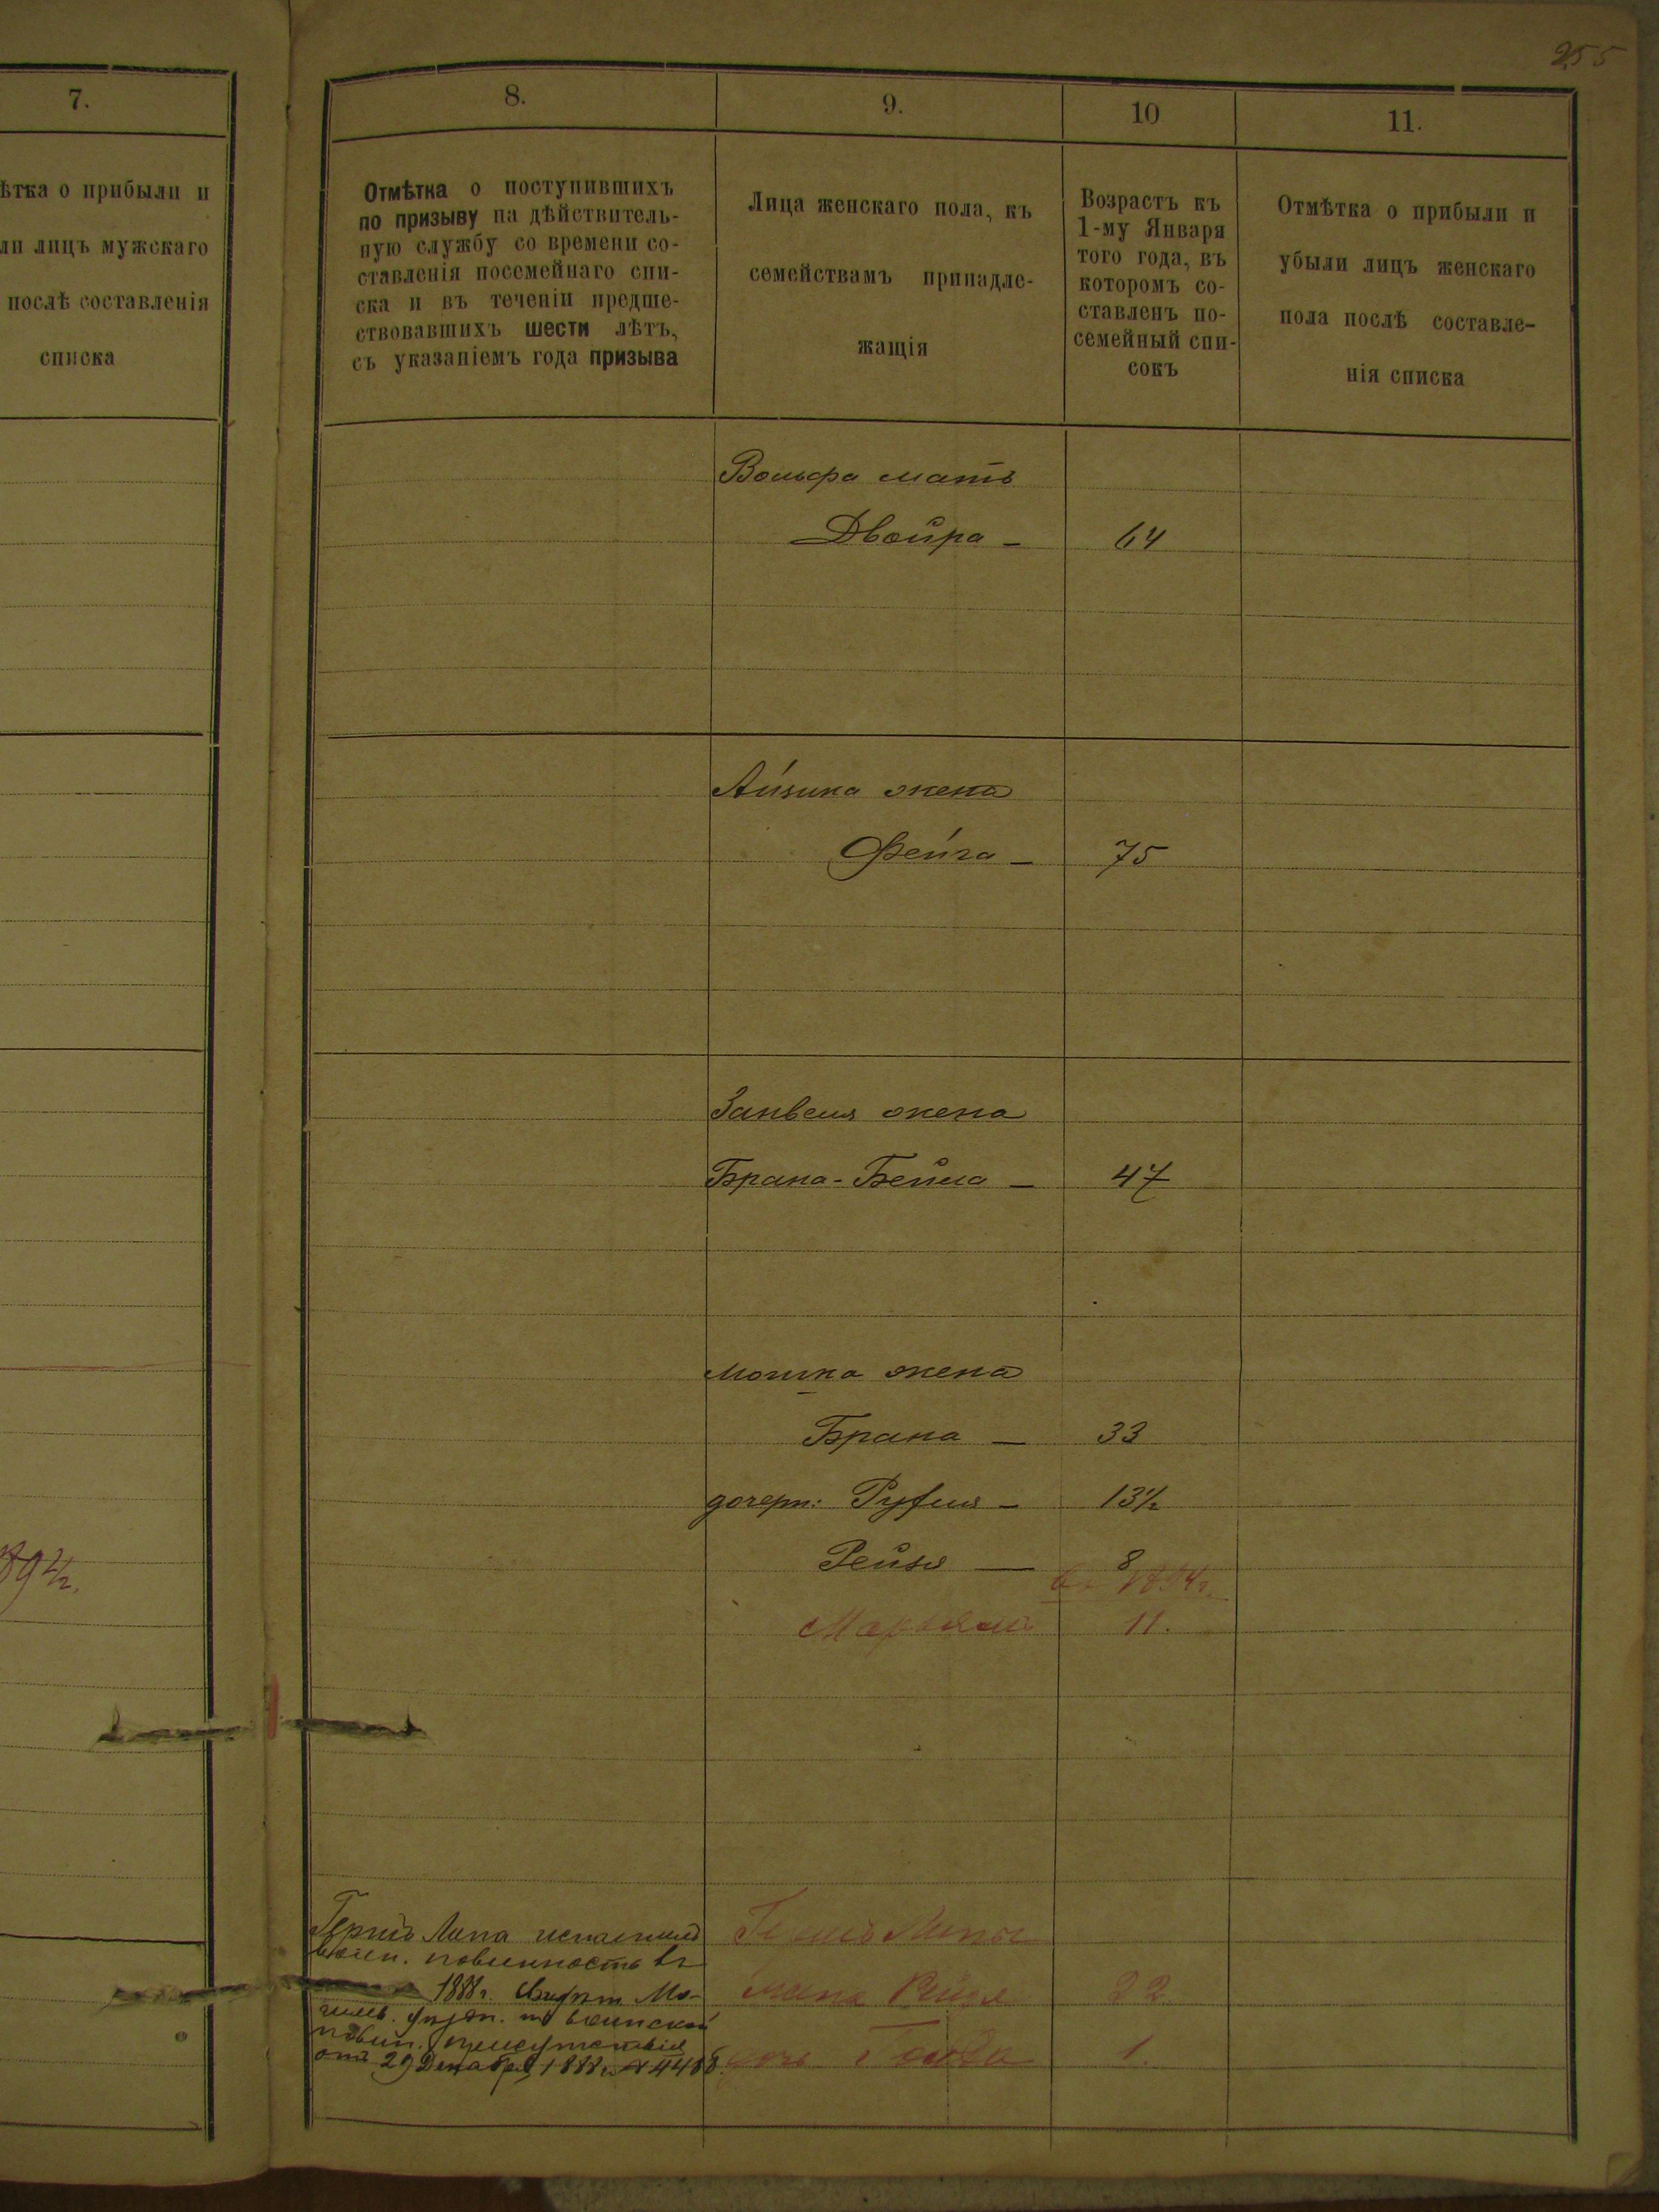 255
7.
ѣтка о прибыли и
ли лицъ мужскаго
послѣ составленія
списка
8.
9.
10
11.
Отмѣтка о поступившихъ
по призыву на дѣйствитель-
ную службу со времени со-
ставленія посемейнаго спи-
ска и въ теченіи предше-
ствовавшихъ шести лѣтъ,
съ указаніемъ года призыва
Лица женскаго пола, къ
семействамъ принадле-
жащія
Возрастъ къ
1-му Января
того года, въ
которомъ со-
ставленъ по-
семейный спи-
сокъ
Отмѣтка о прибыли и
убыли лицъ женскаго
пола послѣ составле-
нія списка
Вольфа мать
Двойра — 64
Айзика жена
Фейга — 75
Занвеля жена
Брана-Бейла — 47
Мошка жена
Брана — 33
дочери: Руфля — 13½
Рейзя — 8
1894г.
Марьяма 11.
Гершъ Липа исполнилъ
воин. повинность въ
1888г. Свидѣт. Мо-
гилев. уѣздн. по воинской
повин. присутствія
отъ 29 Декабря 1888г. № 4408.
Гершъ Липы
жена 22
дочь Голда 1.